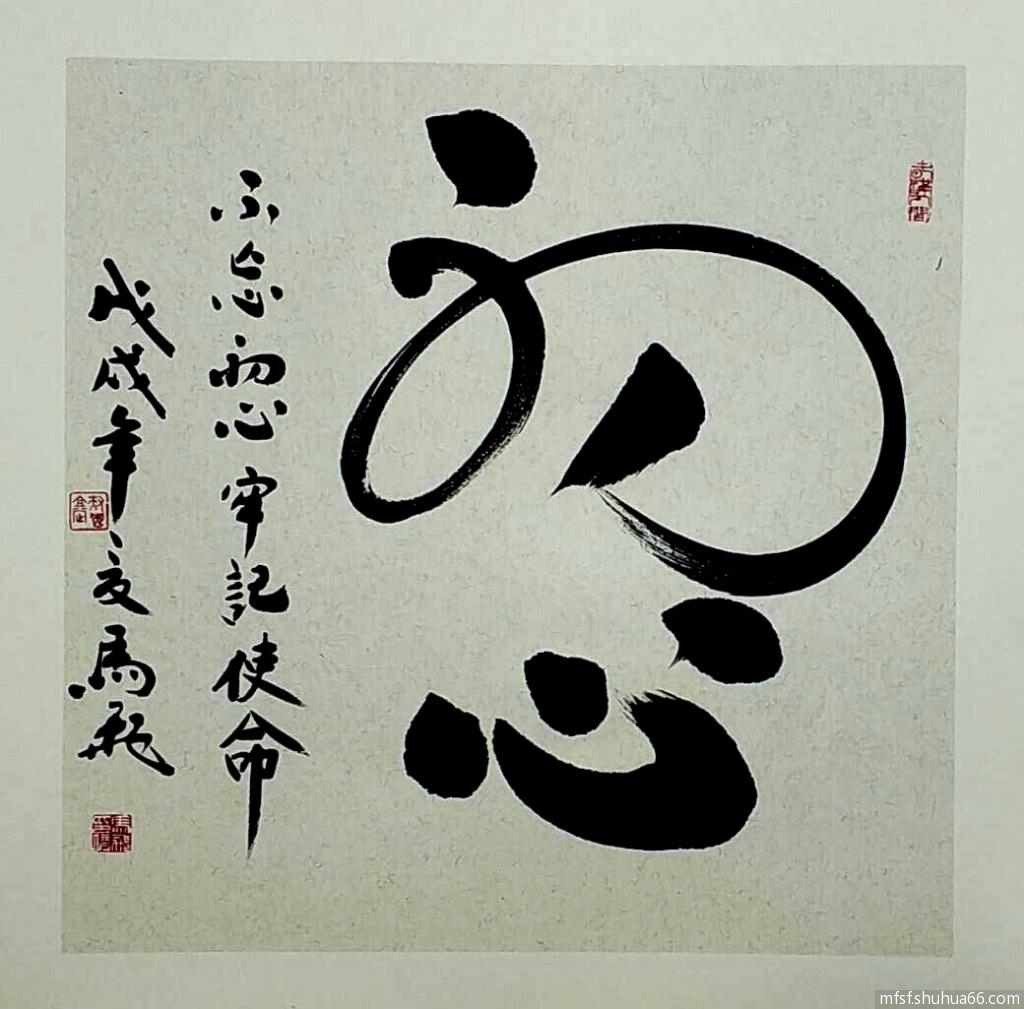 初心
不忘初心牢記使命
戊戌年夏馬飛
mfsf.shuhua66.com